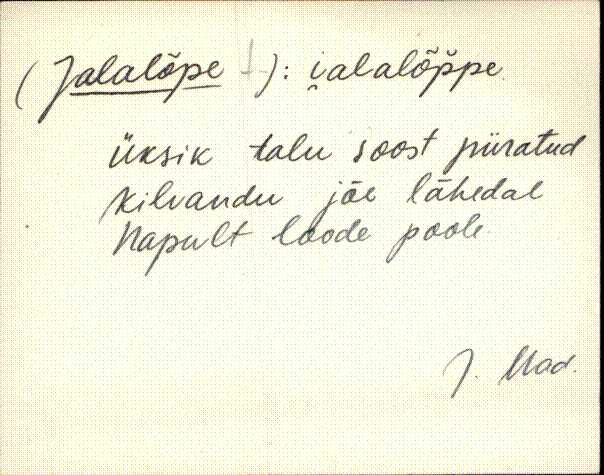 (Jalalõpe †): i̯alalõp̆pe
üksik talu soost piiratud
kilvandu jõe lähedal
Napult loode poole
J. Mad.